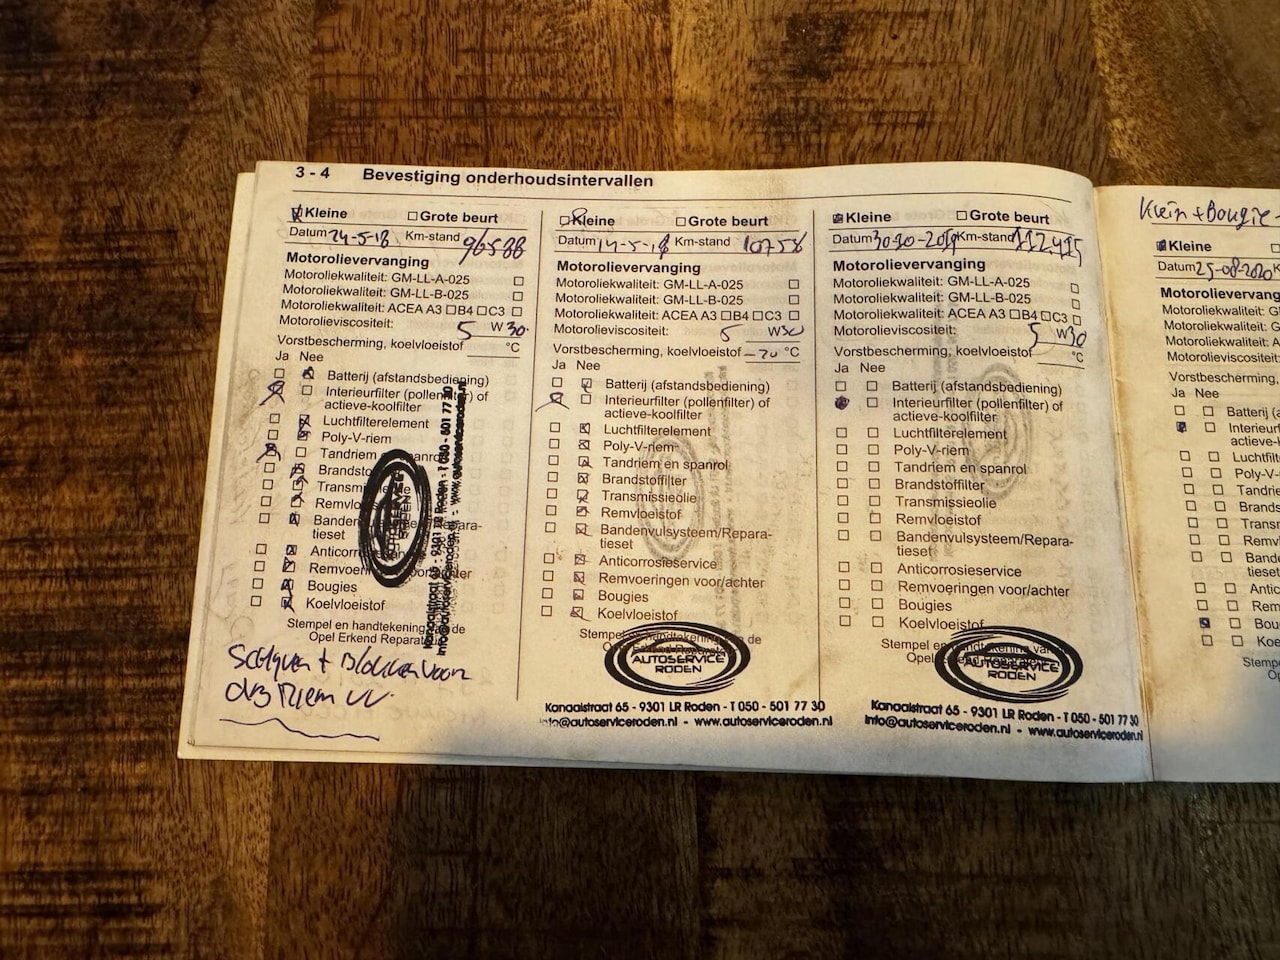 3 - 4 Bevestiging onderhoudsintervallen
Kleine Grote beurt
Datum 24-5-18 Km-stand 96588
Motorolievervanging
Motoroliekwaliteit: GM-LL-A-025
Motoroliekwaliteit: GM-LL-B-025
Motoroliekwaliteit: ACEA A3 B4 C3
Motorolieviscositeit: 5 W 30
Vorstbescherming, koelvloeistof °C
Ja Nee
Batterij (afstandsbediening)
Interieurfilter (pollenfilter) of
actieve-koolfilter
Luchtfilterelement
Poly-V-riem
Tandriem
Transm
Remvloe
Banden
tieset
Anticorros
Remvoe
Bougies
Koelvloeistof
Stempel en handtekening van de
Opel Erkend Repara
AUTOSERVICE
RODEN
Kanaalstraat 65 - 9301 LR Roden - T 050 - 501 77 30
info@autoserviceroden.nl - www.autoserviceroden.nl
Kleine Grote beurt
Datum 14-5-18 Km-stand 10758
Motorolievervanging
Motoroliekwaliteit: GM-LL-A-025
Motoroliekwaliteit: GM-LL-B-025
Motoroliekwaliteit: ACEA A3 B4 C3
Motorolieviscositeit: 5 W30
Vorstbescherming, koelvloeistof -20 °C
Ja Nee
Batterij (afstandsbediening)
Interieurfilter (pollenfilter) of
actieve-koolfilter
Luchtfilterelement
Poly-V-riem
Tandriem en spanrol
Brandstoffilter
Transmissieolie
Remvloeistof
Bandenvulsysteem/Repara-
tieset
Anticorrosieservice
Remvoeringen voor/achter
Bougies
Koelvloeistof
Stempel en handtekening van de
AUTOSERVICE
RODEN
Kanaalstraat 65 - 9301 LR Roden - T 050 - 501 77 30
info@autoserviceroden.nl - www.autoserviceroden.nl
Kleine Grote beurt
Datum 30-10-2019 Km-stand 112.415
Motorolievervanging
Motoroliekwaliteit: GM-LL-A-025
Motoroliekwaliteit: GM-LL-B-025
Motoroliekwaliteit: ACEA A3 B4 C3
Motorolieviscositeit: 5 W30
Vorstbescherming, koelvloeistof °C
Ja Nee
Batterij (afstandsbediening)
Interieurfilter (pollenfilter) of
actieve-koolfilter
Luchtfilterelement
Poly-V-riem
Tandriem en spanrol
Brandstoffilter
Transmissieolie
Remvloeistof
Bandenvulsysteem/Repara-
tieset
Anticorrosieservice
Remvoeringen voor/achter
Bougies
Koelvloeistof
Stempel en handtekening van de
Opel
AUTOSERVICE
RODEN
Kanaalstraat 65 - 9301 LR Roden - T 050 - 501 77 30
info@autoserviceroden.nl - www.autoserviceroden.nl
Klein + Bougie
Kleine
Datum 25-08-2020 K
Motorolievervang
Motoroliekwaliteit: G
Motoroliekwaliteit: G
Motoroliekwaliteit: A
Motorolieviscositeit
Vorstbescherming,
Ja Nee
Batterij (a
Interieurf
actieve-k
Luchtfilt
Poly-V-
Tandrie
Brands
Transm
Remvl
Bande
tieset
Antic
Rem
Bou
Koe
Stempe
Op